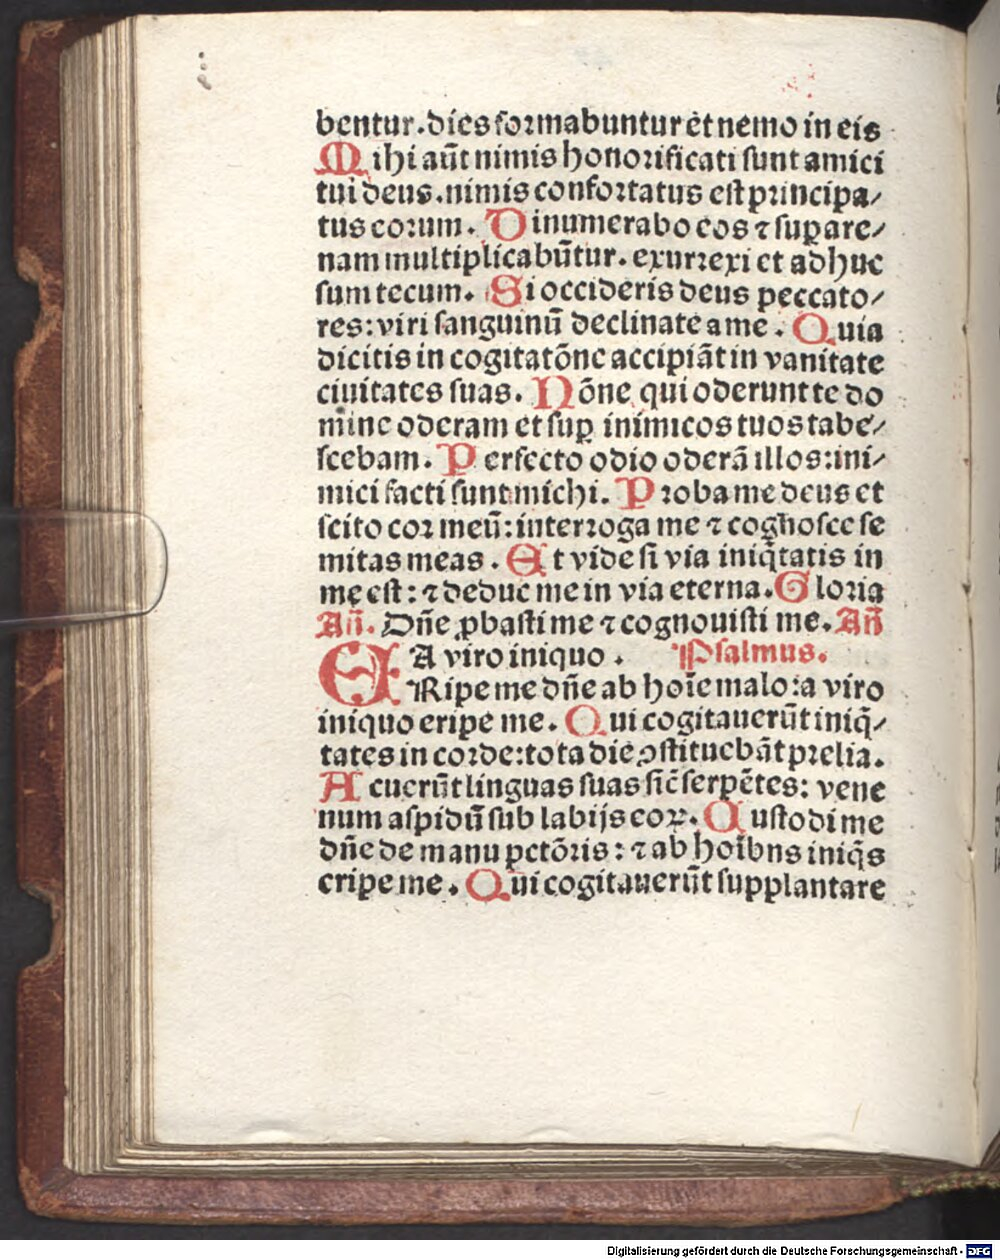 bentur.dies formabuntur et nemo in eis
Mihi aūt nimis honorificati sunt amici
tui deus.nimis confortatus est principa/
tus eorum. Dinumerabo eos ⁊ suꝑ are/
nam multiplicabūtur. exurrexi et adhuc
sum tecum. Si occideris deus peccato/
res:viri sanguinū declinate a me. Quia
dicitis in cogitatōne accipiāt in vanitate
ciuitates suas. Nōne qui oderunt te do
mine oderam et suꝑ inimicos tuos tabe/
scebam. Perfecto odio oderā illos:ini/
mici facti sunt michi. Proba me deus et
scito cor meū:interroga me ⁊ cognosce se
mitas meas. Et vide si via iniq̄tatis in
me est: ⁊ deduc me in via eterna. Gloria
Añ. Dñe ꝓbasti me ⁊ cognouisti me. Añ
A viro iniquo. Psalmus.
ERipe me dñe ab hoīe malo:a viro
iniquo eripe me. Qui cogitauerūt iniq̄/
tates in corde:tota die ꝯstituebāt prelia.
Acuerūt linguas suas sic̄ serpētes: vene
num aspidū sub labijs eoꝝ. Custodi me
dñe de manu pctōris: ⁊ ab hoībus iniq̄s
eripe me. Qui cogitauerūt supplantare
Digitalisierung gefördert durch die Deutsche Forschungsgemeinschaft - DFG